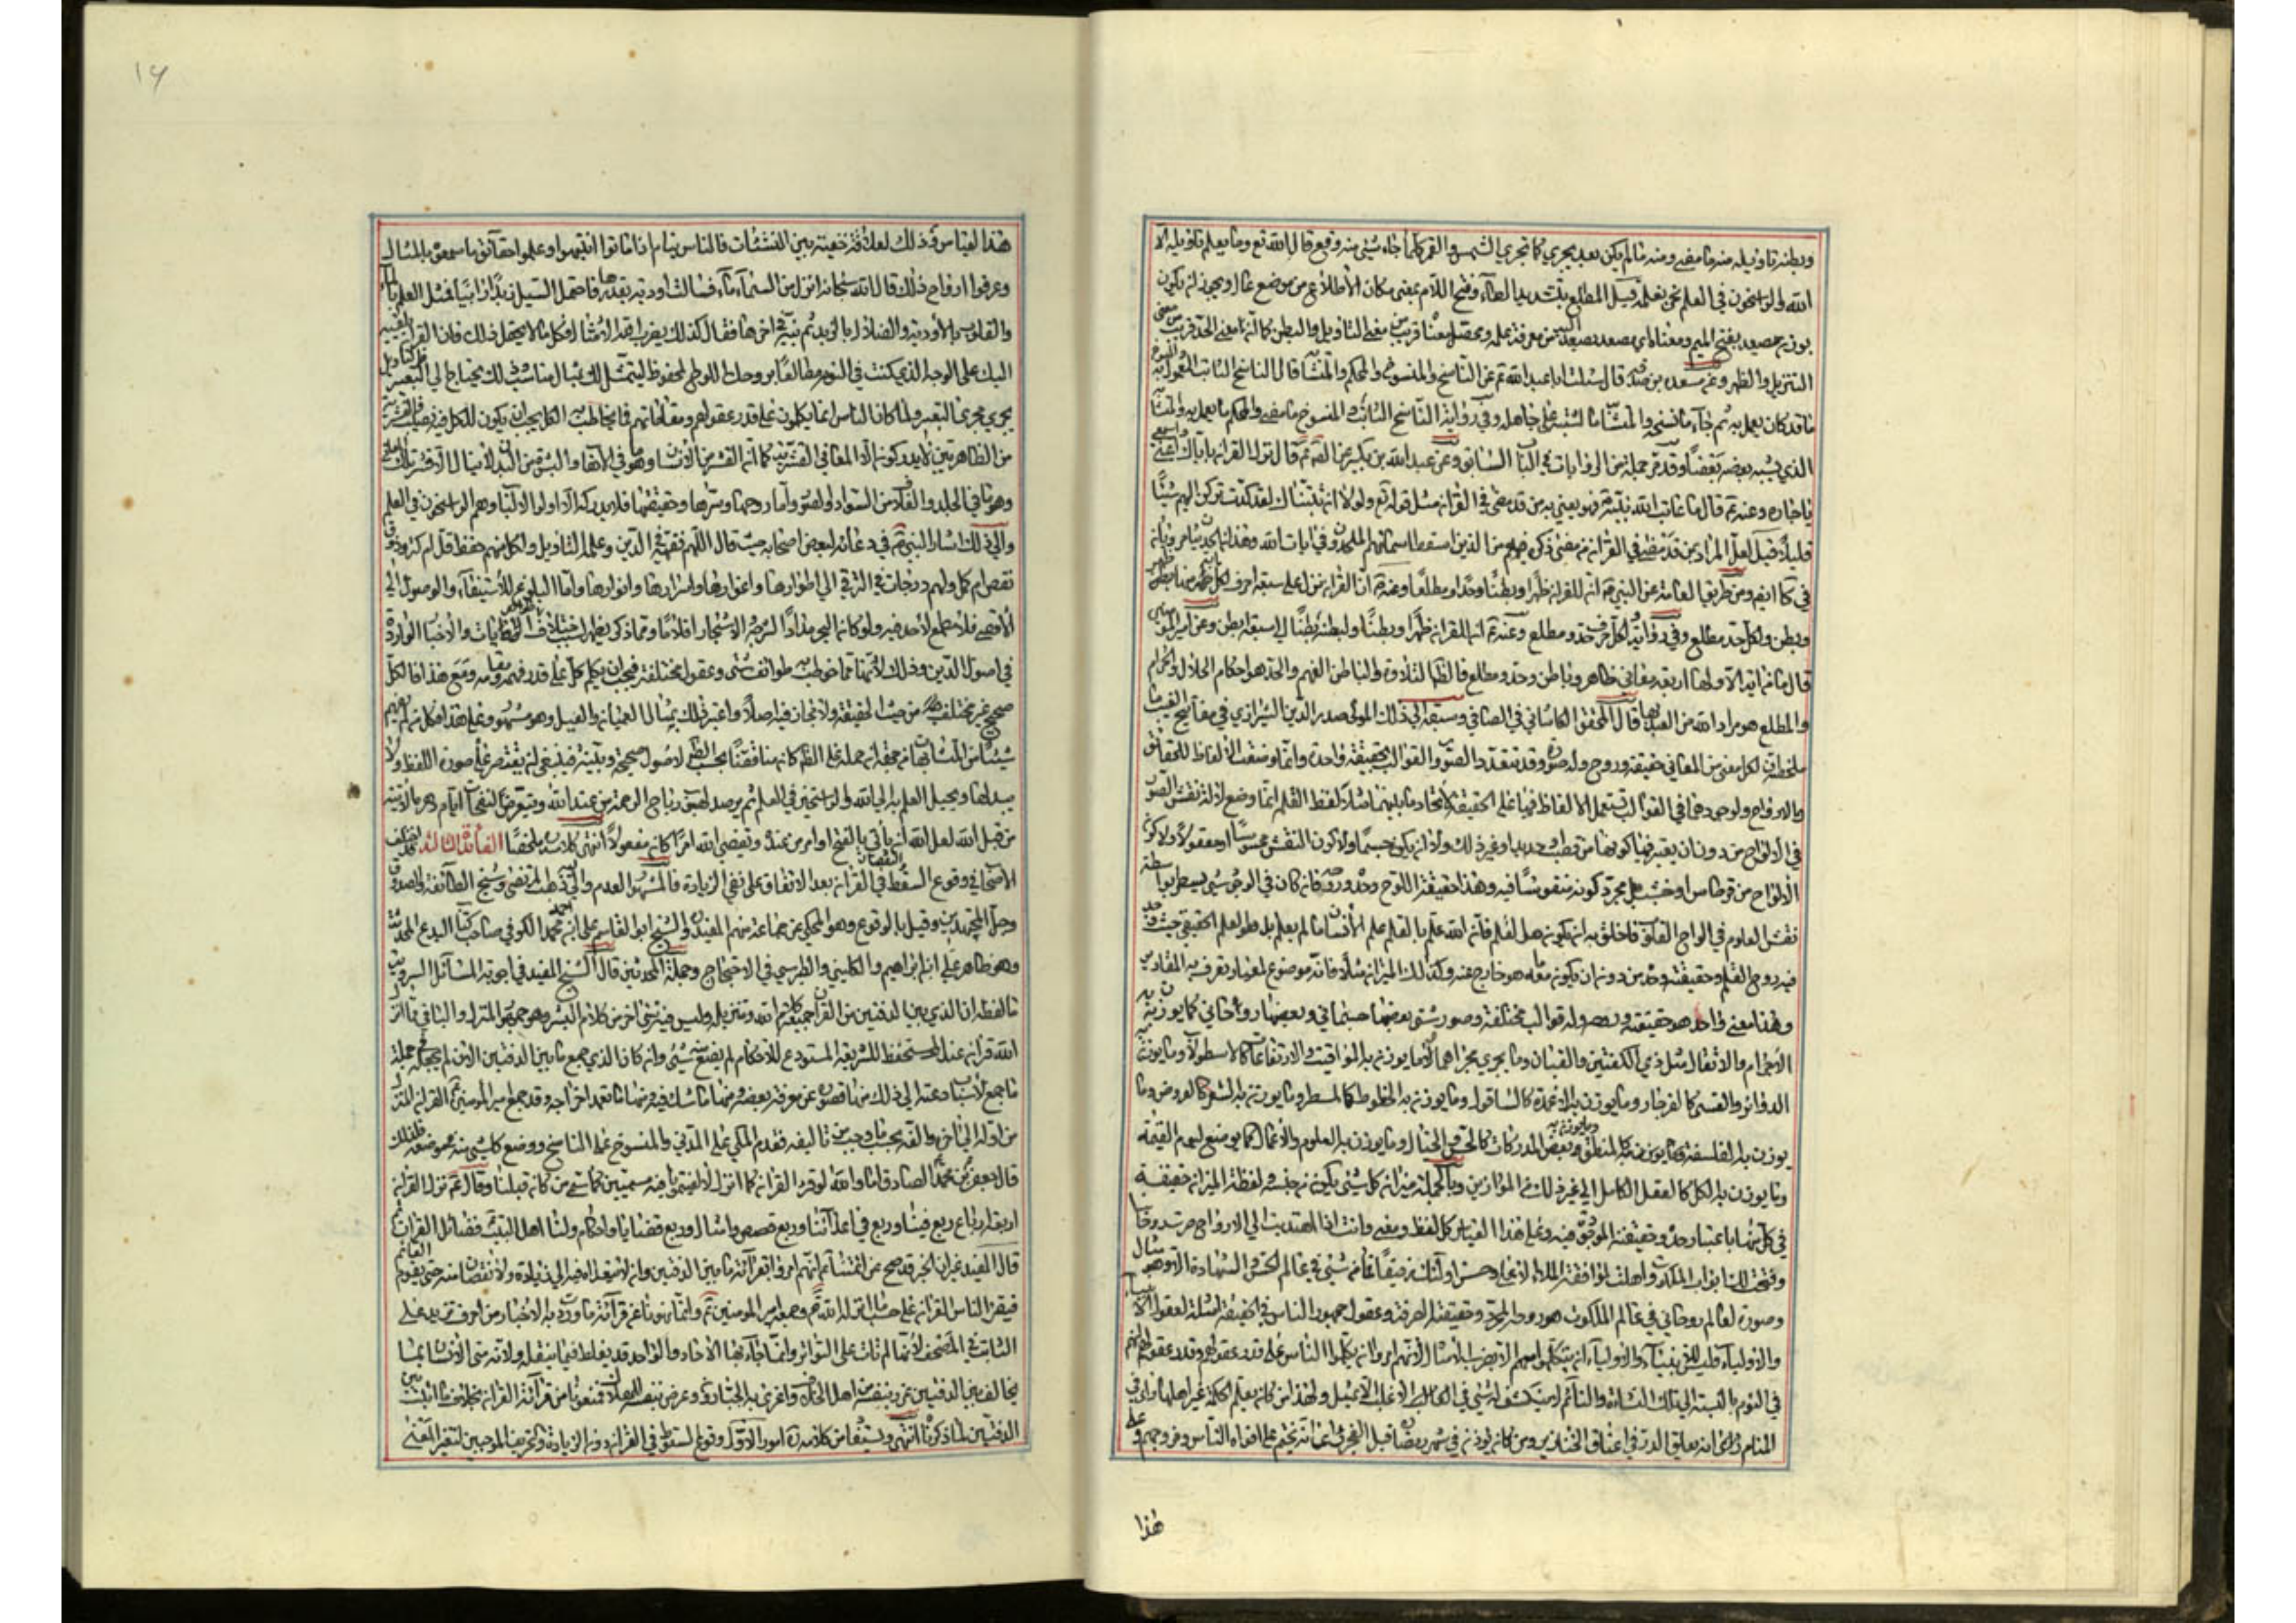 وبطنه تاويله منه ما مضى ومنه ما لم يكن بعد يجري كما تجري الشمس والقمر كلما جاء شيئ منه وقع قال الله تع وما يعلم تاويله الا
الله والراسخون في العلم نحن نعلمه قيل المطلع بتشديد الطاء وفتح اللام بمعنى مكان الأطلاع من موضع عال ويجوز ان يكون
بوزن مصعد بفتح الميم ومعناه اي مصعد يصعد اليه من معرفة علمه ومحصل معناه قريب من معنى التاويل والبطن كما ان معنى الحد قريب من معنى
التنزيل والظهر وعن مسعدة بن صدقة قال سئلت ابا عبد الله ع عن الناسخ والمنسوخ والمحكم والمتشابه قال الناسخ الثابت المعمول به والمنسوخ
ما قد كان يعمل به ثم جاء ما نسخه والمتشابه ما اشتبه على جاهله وفي رواية الناسخ الثابت والمنسوخ ما مضى والمحكم ما يعمل به والمتشابه
الذي يشبه بعضه بعضا وقد مر جملة من الروايات في الباب السابق وعن عبد الله بن بكير عن الص ع قال نزل القران باياك اعني واسمعي
يا جاره وعنه ع قال ما عاتب الله نبيه فهو يعني به من قد مضى في القران مثل قوله تع ولولا ان ثبتناك لقد كدت تركن اليهم شيئا
قليلا قيل لعل المراد بمن قد مضى في القران من مضى ذكره فيه من الذين اسقط اسمائهم الملحدون في ايات الله
في كا ايضا ومن طريق العامة عن النبي ص ان للقران ظهرا وبطنا وحدا ومطلعا وعنه ص ان القران نزل على سبعة احرف لكل اية منها ظهر
وبطن ولكل حد مطلع وفي رواية لكل حرف حد ومطلع وعنه ع ان للقران ظهرا وبطنا ولبطنه بطنا الى سبعة ابطن وعن امير المؤمنين
قال ما من اية الا ولها اربعة معاني ظاهر وباطن وحد ومطلع فالظاهر التلاوة والباطن الفهم والحد هو احكام الحلال والحرام
والمطلع هو مراد الله من العبد بها قال المحقق الكاشاني في الصافي وسبقه الى ذلك المولى صدر الدين الشيرازي في مفاتيح الغيب ما
ملخصه ان لكل معنى من المعاني حقيقة وروح وله صورة وقد تتعدد الصور والقوالب لحقيقة واحدة وانما وضعت الألفاظ للحقائق
والارواح ولوجودهما في القوالب تستعمل الالفاظ فيها على الحقيقة لاتحاد ما بينهما مثلا لفظ القلم انما وضع لآلة نقش الصور
في الالواح من دون ان يعتبر فيها كونها من قصب او حديد او غير ذلك ولا ان يكون جسما ولا كون النقش محسوسا او معقولا ولا كون
الالواح من قرطاس او خشب بل مجرد كونه منقوشا فيه وهذا حقيقة اللوح وحده وروحه فان كان في الوجود شيئ يسطر بواسطته
نقش العلوم في الواح القلوب فاخلق به ان يكون هو القلم فان الله علم بالقلم علم الأنسان ما لم يعلم بل هو القلم الحقيقي حيث وجد
فيه روح القلم وحقيقته وحده من دون ان يكون معه ما هو خارج عنه وكذلك الميزان مثلا فانه موضوع لمعيار تعرف به المقادير
وهذا معنى واحد هو حقيقته وروحه وله قوالب مختلفة وصور شتى بعضها جسماني وبعضها روحاني كما يوزن به
الاجرام والاثقال مثل ذي الكفتين والقبان وما يجري مجراهما وما يوزن به المواقيت والارتفاعات كالاسطرلاب وما يوزن به
الدوائر والقسي كالفرجار وما يوزن به الاعمدة كالشاقول وما يوزن به الخطوط كالمسطر وما يوزن به الشعر كالعروض وما
يوزن به الفلسفة كالمنطق وما يوزن به بعض المدركات كالحس والخيال وما يوزن به العلوم والاعمال كما يوضع ليوم القيمة
وما يوزن به الكل كالعقل الكامل الى غير ذلك من الموازين وبالجملة ميزان كل شيئ يكون من جنسه ولفظة الميزان حقيقة
في كل منها باعتبار حده وحقيقته الموجودة فيه وعلى هذا القياس كل لفظ ومعنى وانت اذا اهتديت الى الارواح صرت روحانيا
وفتحت لك ابواب الملكوت واهلت لموافقة الملاء الاعلى وحسن اولئك رفيقا فما من شيئ في عالم الحس والشهادة الا وهو مثال
وصورة لعالم روحاني في عالم الملكوت هو روحه المجرد وحقيقته الصرفة وعقول جمهور الناس في الحقيقة امثلة لعقول الانبياء
والاولياء فليس للانبياء والاولياء ان يتكلموا معهم الا بضرب الامثال لانهم امروا ان يكلموا الناس على قدر عقولهم وقدر عقولهم انهم
في النوم بالنسبة الى تلك النشاة والنائم لا ينكشف له شيئ في الغالب الا بمثل ولهذا من كان يعلم الحكمة غير اهلها راى في
المنام انه يعلق الدر في اعناق الخنازير ومن كان يؤذن في شهر رمضان قبل الفجر راى انه يختم على افواه الناس وفروجهم وعلى
هذا
١٦
هذا القياس وذلك لعلاقة خفية بين النشئات فالناس نيام اذا ماتوا انتبهوا وعلموا حقائق ما سمعوه بالمثال
وعرفوا ارواح ذلك قال الله سبحانه انزل من السماء ماء فسالت اودية بقدرها فاحتمل السيل زبدا رابيا فمثل العلم بالماء
والقلوب بالأودية والضلال بالزبد ثم نبه في اخرها فقال كذلك يضرب الله الامثال فكل ما لا يحتمل ذلك فان القران يلقيه
اليك على الوجه الذي كنت في النوم مطالعا بروحك اللوح المحفوظ ليتمثل لك بمثال مناسب ذلك يحتاج الى التعبير فالتاويل
يجري مجرى التعبير ولما كان الناس انما يكلمون على قدر عقولهم ومقاماتهم فما يخاطب به الكل يجب ان يكون للكل فيه نصيب فالقشرية
من الظاهريين لا يدركون الا المعاني القشرية كما ان القشر من الأنسان وهو ما في الاهاب والبشرة من البدن لا ينال الا قشر تلك المعاني
وهو ما في الجلد والغلاف من السواد والصور واما روحها وسرها وحقيقتها فلا يدركه الا اولوا الالباب وهم الراسخون في العلم
والى ذلك اشار النبي ص في دعائه لبعض اصحابه حيث قال اللهم فقهه في الدين وعلمه التاويل ولكل منهم حظ قل ام كثر وذوق
نقص ام كمل ولهم درجات في الترقي الى اطوارها واغوارها واسرارها وانوارها واما البلوغ للاستيفاء والوصول الى
الأقصى فلا مطمع لاحد فيه ولو كان البحر مدادا لشرحه والاشجار اقلاما ومما ذكر يظهر سبب اختلاف ظواهر الايات والأخبار الواردة
في اصول الدين وذلك لأنها مما خوطب به طوائف شتى وعقول مختلفة فيجب ان يكلم كل على قدر فهمه ومقامه ومع هذا فالكل
صحيح غير مختلف من حيث الحقيقة ولا مجاز فيه اصلا واعتبر ذلك بمثال العميان والفيل وهو مشهور وعلى هذا فكل من لم يفهم
شيئا من المتشابهات من جهة ان حمله على الظاهر كان مناقضا بحسب الظاهر لاصول صحيحة دينية فينبغي ان يقتصر على صورة اللفظ ولا
يبدلها ويحيل العلم به الى الله والراسخين في العلم ثم يترصد لهبوب رياح الرحمة من عند الله ويتعرض لنفحات ايام دهره الآتية
من قبل الله لعل الله ان ياتي بالفتح او امر من عنده ويقضي الله امرا كان مفعولا انتهى كلامه ملخصا الفائدة الثالثة قد اختلف
الاصحاب في وقوع السقط والنقصان في القران بعد الاتفاق على نفي الزيادة فالمشهور العدم واليه ذهب المرتضى وشيخ الطائفة والصدوق
وجل المجتهدين وقيل بالوقوع وهو المحكي عن جماعة منهم المفيد والشيخ ابو القاسم علي بن احمد الكوفي صاحب كتاب البدع المحدثة
وهو ظاهر علي ابن ابراهيم والكليني والطبرسي في الاحتجاج وجملة المحدثين قال الشيخ المفيد في اجوبة المسائل السروية
ما لفظه ان الذي بين الدفتين من القران جميعه كلام الله وتنزيله وليس فيه شيئ من كلام البشر وهو جمهور المنزل والباقي مما انزله
الله قرانا عند المستحفظ للشريعة المستودع للاحكام لم يضع منه شيئ وان كان الذي جمع ما بين الدفتين الان لم يجعله في جملة
ما جمع لأسباب دعته الى ذلك منها قصوره عن معرفة بعضه ومنها ما شك فيه ومنها ما تعمد اخراجه وقد جمع امير المؤمنين ع القران المنزل
من اوله الى اخره والفه بحسب ما وجب من تاليفه فقدم المكي على المدني والمنسوخ على الناسخ ووضع كل شيئ منه موضعه فلذلك
قال جعفر بن محمد الصادق اما والله لو قرء القران كما انزل لألفيتمونا فيه مسمين كما سمي من كان قبلنا وقال ع نزل القران
اربعة ارباع ربع فينا وربع في اعدائنا وربع قصص وامثال وربع قضايا واحكام ولنا اهل البيت فضائل القران ثم
قال المفيد غير ان الخبر قد صح عن ائمتنا ع انهم امروا بقرائة ما بين الدفتين وان لا نتعداه الى زيادة ولا نقصان منه حتى يقوم القائم
فيقرء الناس القران على ما انزله الله تع وجمعه امير المؤمنين ع وانما نهونا عن قرائة ما وردت به الاخبار من احرف تزيد على
الثابت في المصحف لأنها لم تات على التواتر وانما جاء بها الآحاد والواحد قد يغلط فيما ينقله ولانه متى قرء الأنسان بما
يخالف ما بين الدفتين غرر بنفسه من اهل الخلاف واغرى به الجبارين وعرض نفسه للهلاك فمنعونا من قرائة القران بخلاف ما اثبت بين
الدفتين لما ذكرناه انتهى ويستفاد من كلامه ره امور الاول وقوع السقوط في القران دون الزيادة والتحريف الموجبين لتغير المعنى